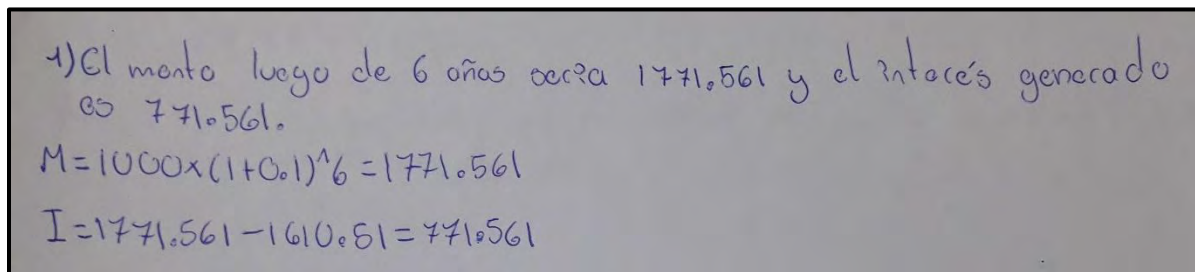 1) El monto luego de 6 años sería 1771.561 y el interés generado
es 771.561.
M=1000×(1+0.1)^6=1771.561
I=1771.561-1610.51=771.561